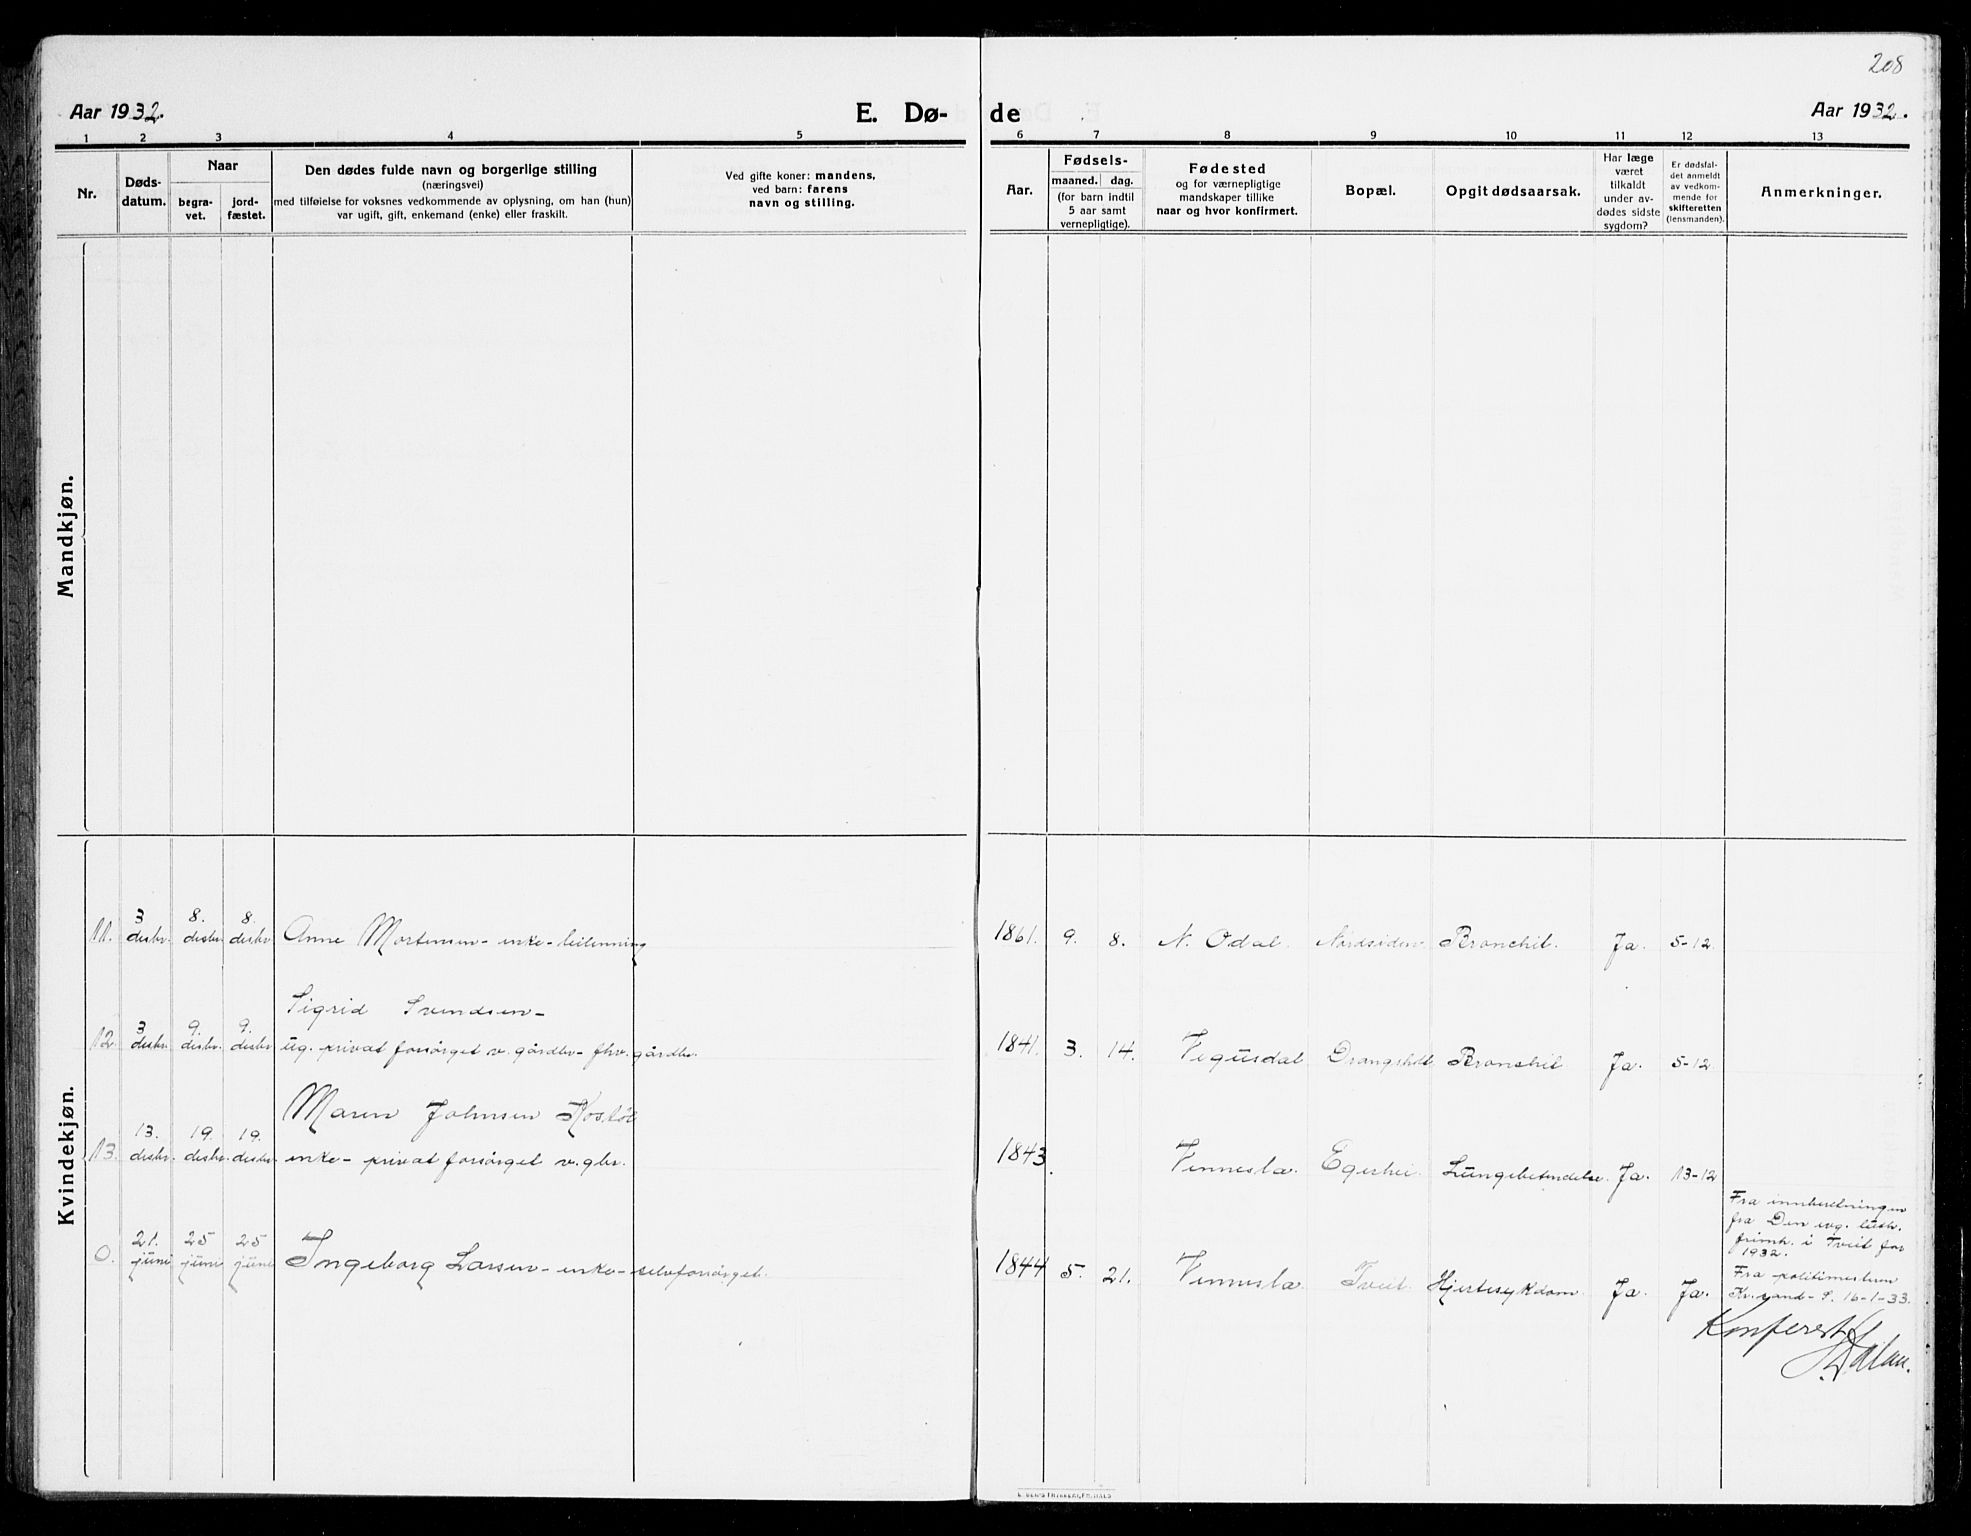 208
Aar 1932.
E. Dø-
de
Aar 1932.
1 2 3 4 5 6 7 8 9 10 11 12 13
Nr.
Døds-
datum.
Naar
begra-
vet.
jord-
fæstet.
Den dødes fulde navn og borgerlige stilling
(næringsvei)
med tilføielse for voksnes vedkommende av oplysning, om han (hun)
var ugift, gift, enkemand (enke) eller fraskilt.
Ved gifte koner: mandens,
ved barn: farens
navn og stilling.
Aar.
Fødsels-
maaned. dag.
(for barn indtil
5 aar samt
vernepligtige).
Fødested
og for værnepligtige
mandskaper tillike
naar og hvor konfirmert.
Bopæl.
Opgit dødsaarsak.
Har læge
været
tilkaldt
under av-
dødes sidste
sygdom?
Er dødsfal-
det anmeldt
av vedkom-
mende for
skifteretten
(lensmanden).
Anmerkninger.
Mandkjøn.
Kvindekjøn.
3 8. 8.
11. desbr. desbr. desbr. Anne Mortensen - enke - 1861. 9. 8. N. Odal. Nordsiden Bronchit. Ja. 5-12.
Sigrid Svendsen -
3 9. 9.
12. desbr. desbr. desbr. ug. privat forsörget v. gårdbr - fhv. gårdbr. 1841. 3. 14. Vegusdal Bronchit Ja. 5-12
Maren Johnsen
13. 19. 19.
13. desbr. desbr. desbr. enke - privat forsörget v. gbr. 1843. Vennesla. Egerhei. Lungebetendelse. Ja. 13-12
Fra innberetningen
fra Den evg. luth.
frimh. i Tveit for
1932.
21. 25 25
0. juni juni juni Ingeborg Larsen - enke - selvforsörget. 1844 5. 21. Vennesla Tveit. Hjertesykdom. Ja. Ja.
Fra politimesteren
Kr.sand - S. 16-1-33.
Konferert